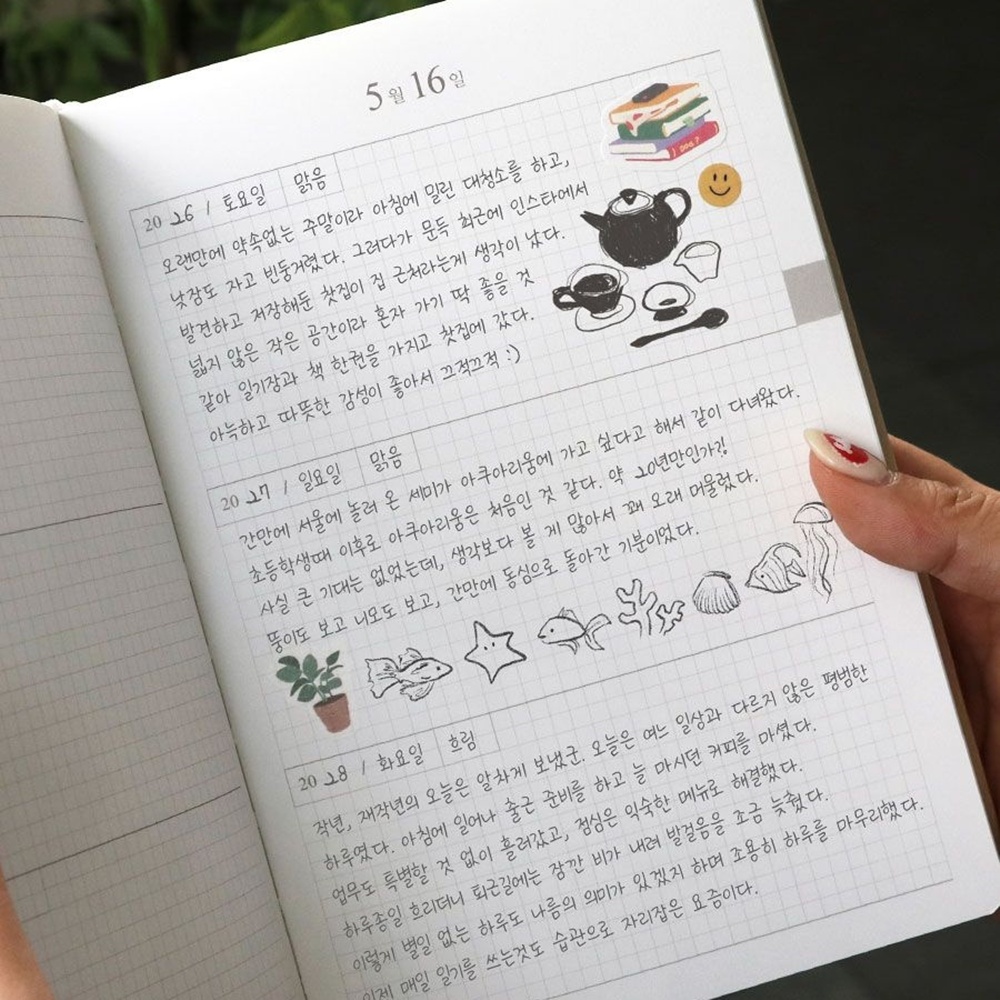 5월 16일
2026 / 토요일 맑음
오랜만에 약속없는 주말이라 아침에 밀린 대청소를 하고,
낮잠도 자고 빈둥거렸다. 그러다가 문득 최근에 인스타에서
발견하고 저장해둔 찻집이 집 근처라는게 생각이 났다.
넓지 않은 작은 공간이라 혼자 가기 딱 좋을 것
같아 일기장과 책 한권을 가지고 찻집에 갔다.
아늑하고 따뜻한 감성이 좋아서 끄적끄적 :)
2027 / 일요일 맑음
간만에 서울에 놀러 온 세미가 아쿠아리움에 가고 싶다고 해서 같이 다녀왔다.
초등학생때 이후로 아쿠아리움은 처음인 것 같다. 약 20년만인가?!
사실 큰 기대는 없었는데, 생각보다 볼 게 많아서 꽤 오래 머물렀다.
뚱이도 보고 니모도 보고, 간만에 동심으로 돌아간 기분이었다.
2028 / 화요일 흐림
작년, 재작년의 오늘은 알차게 보냈군. 오늘은 여느 일상과 다르지 않은 평범한
하루였다. 아침에 일어나 출근 준비를 하고 늘 마시던 커피를 마셨다.
업무도 특별할 것 없이 흘러갔고, 점심은 익숙한 메뉴로 해결했다.
하루종일 흐리더니 퇴근길에는 잠깐 비가 내려 발걸음을 조금 늦췄다.
이렇게 별일 없는 하루도 나름의 의미가 있겠지 하며 조용히 하루를 마무리했다.
이제 매일 일기를 쓰는것도 습관으로 자리잡은 요즘이다.